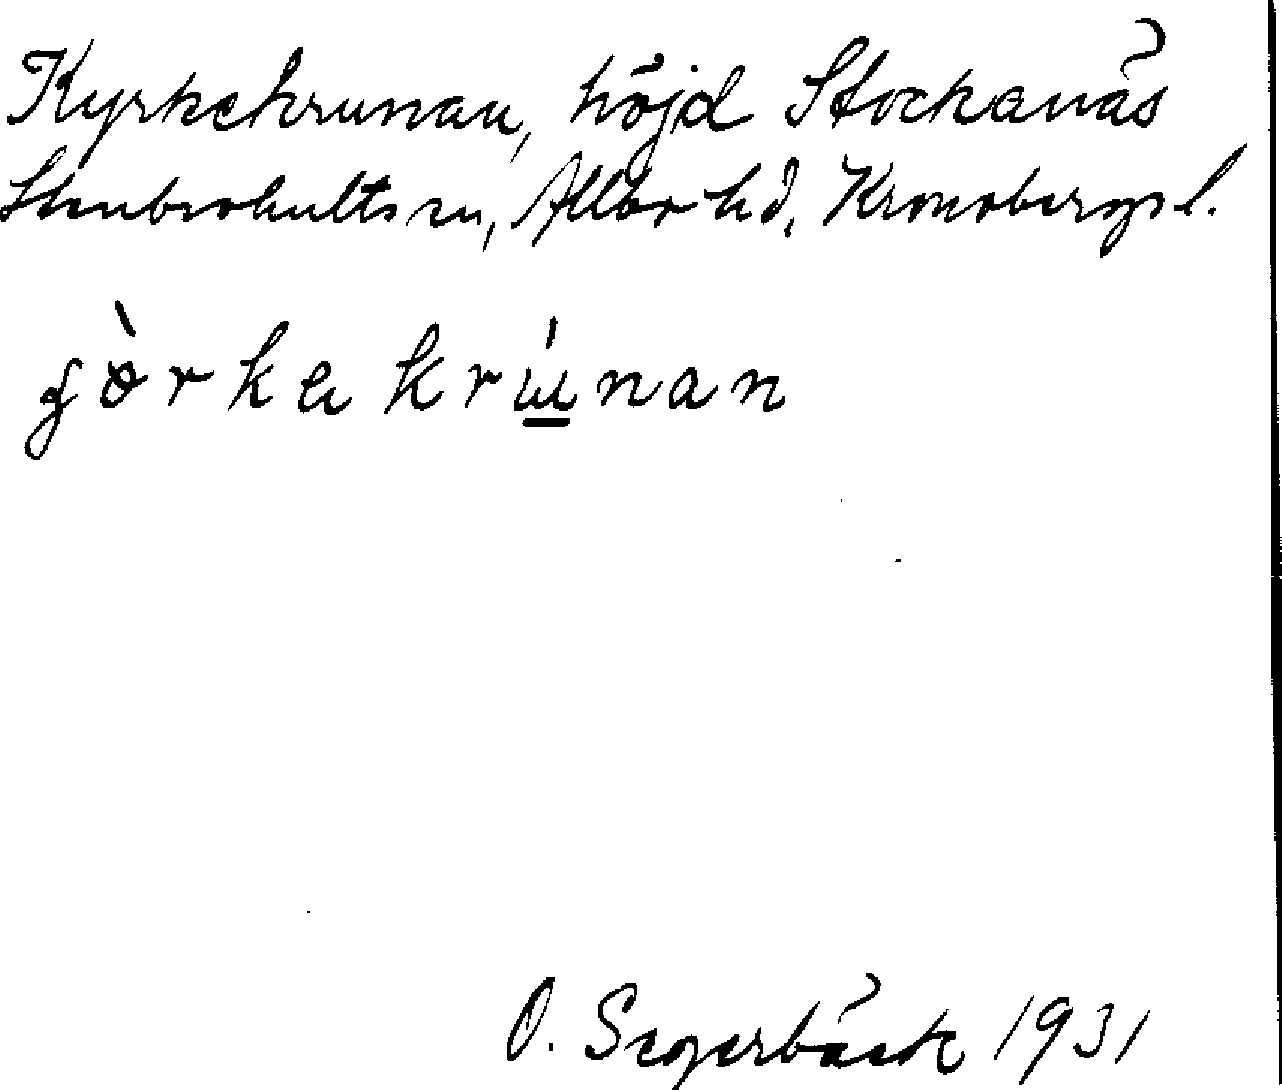 Kyrkekrunan, höjd Stockanäs
Stenbrohults sn, Allbo hd, Kronobergs l.
krúnan
O. Segerbäck 1931